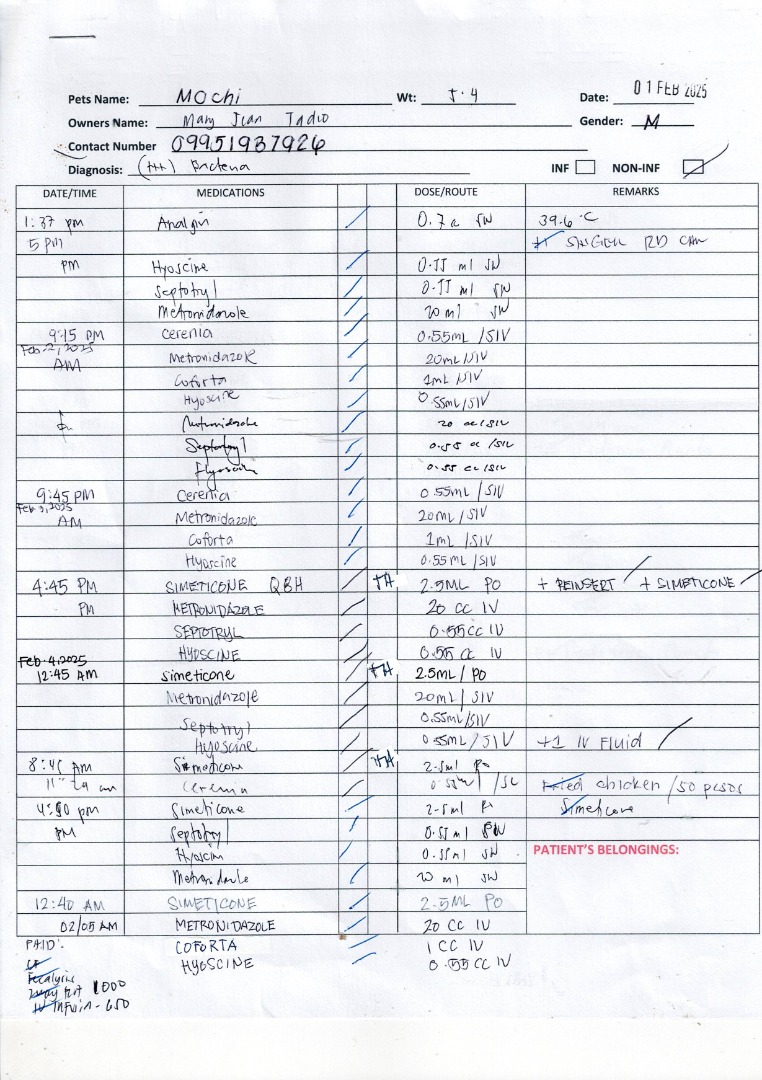 Pets Name: Mochi Wt: 5.4 Date: 01 FEB 2025
Owners Name: Mary Jean Tadio Gender: M
Contact Number 09951937926
Diagnosis: (+++) Bacteria INF NON-INF
DATE/TIME MEDICATIONS DOSE/ROUTE REMARKS
1:37 pm Analgin 39.6°C
5 pm
PM Hyoscine 0.55 ml
Septotryl 0.55 ml
Metronidazole 20 ml
9:15 PM Cerenia 0.55mL /SIV
Feb 2, 2025
AM Metronidazole 20mL/SIV
Coforta 1mL /SIV
Hyoscine 0.55mL/SIV
Metronidazole 20 cc/SIV
Septotryl 0.55 cc /SIV
Hyoscine 0.55 cc /SIV
9:45 PM Cerenia 0.55mL /SIV
Feb 3, 2025
AM Metronidazole 20mL /SIV
Coforta 1mL /SIV
Hyoscine 0.55 mL/SIV
4:45 PM SIMETICONE Q8H TA 2.5ML PO + REINSERT + SIMETICONE
PM METRONIDAZOLE 20 CC IV
SEPTOTRYL 0.55CC IV
HYOSCINE 0.55 CC IV
Feb. 4, 2025
12:45 AM Simeticone TA 2.5ML / PO
Metronidazole 20ml / SIV
Septotryl 0.55mL/SIV
Hyoscine 0.55mL / SIV +1 IV Fluid
8:45 AM Simeticone TA 2.5ml Po
Cerenia chicken /50 pesos
4:00 pm Simeticone 2.5ml Simeticone
PM Septotryl 0.55 ml
Hyoscin 0.55ml
20 ml PATIENT'S BELONGINGS:
12:40 AM SIMETICONE 2.5ML PO
02/05 AM METRONIDAZOLE 20 CC IV
PAID: COFORTA 1 CC IV
HYOSCINE 0.55 CC IV
Fecalysis
1000
Infusion - 650